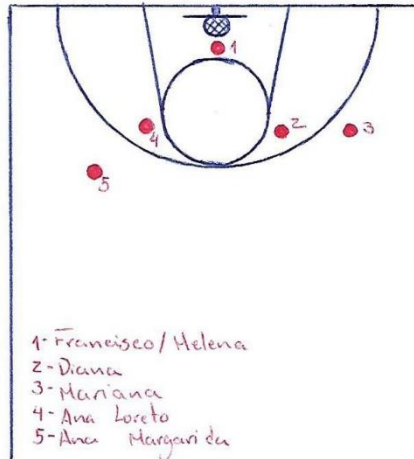 1
4
2
3
5
1-Francisco/Helena
2-Diana
3-Mariana
4-Ana Loreto
5-Ana Margarida